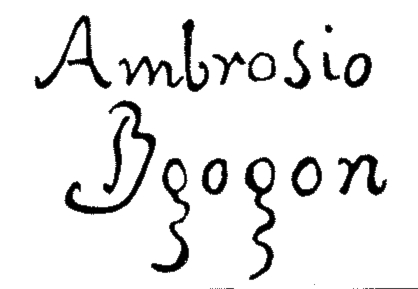 Ambrosio
Bgogon